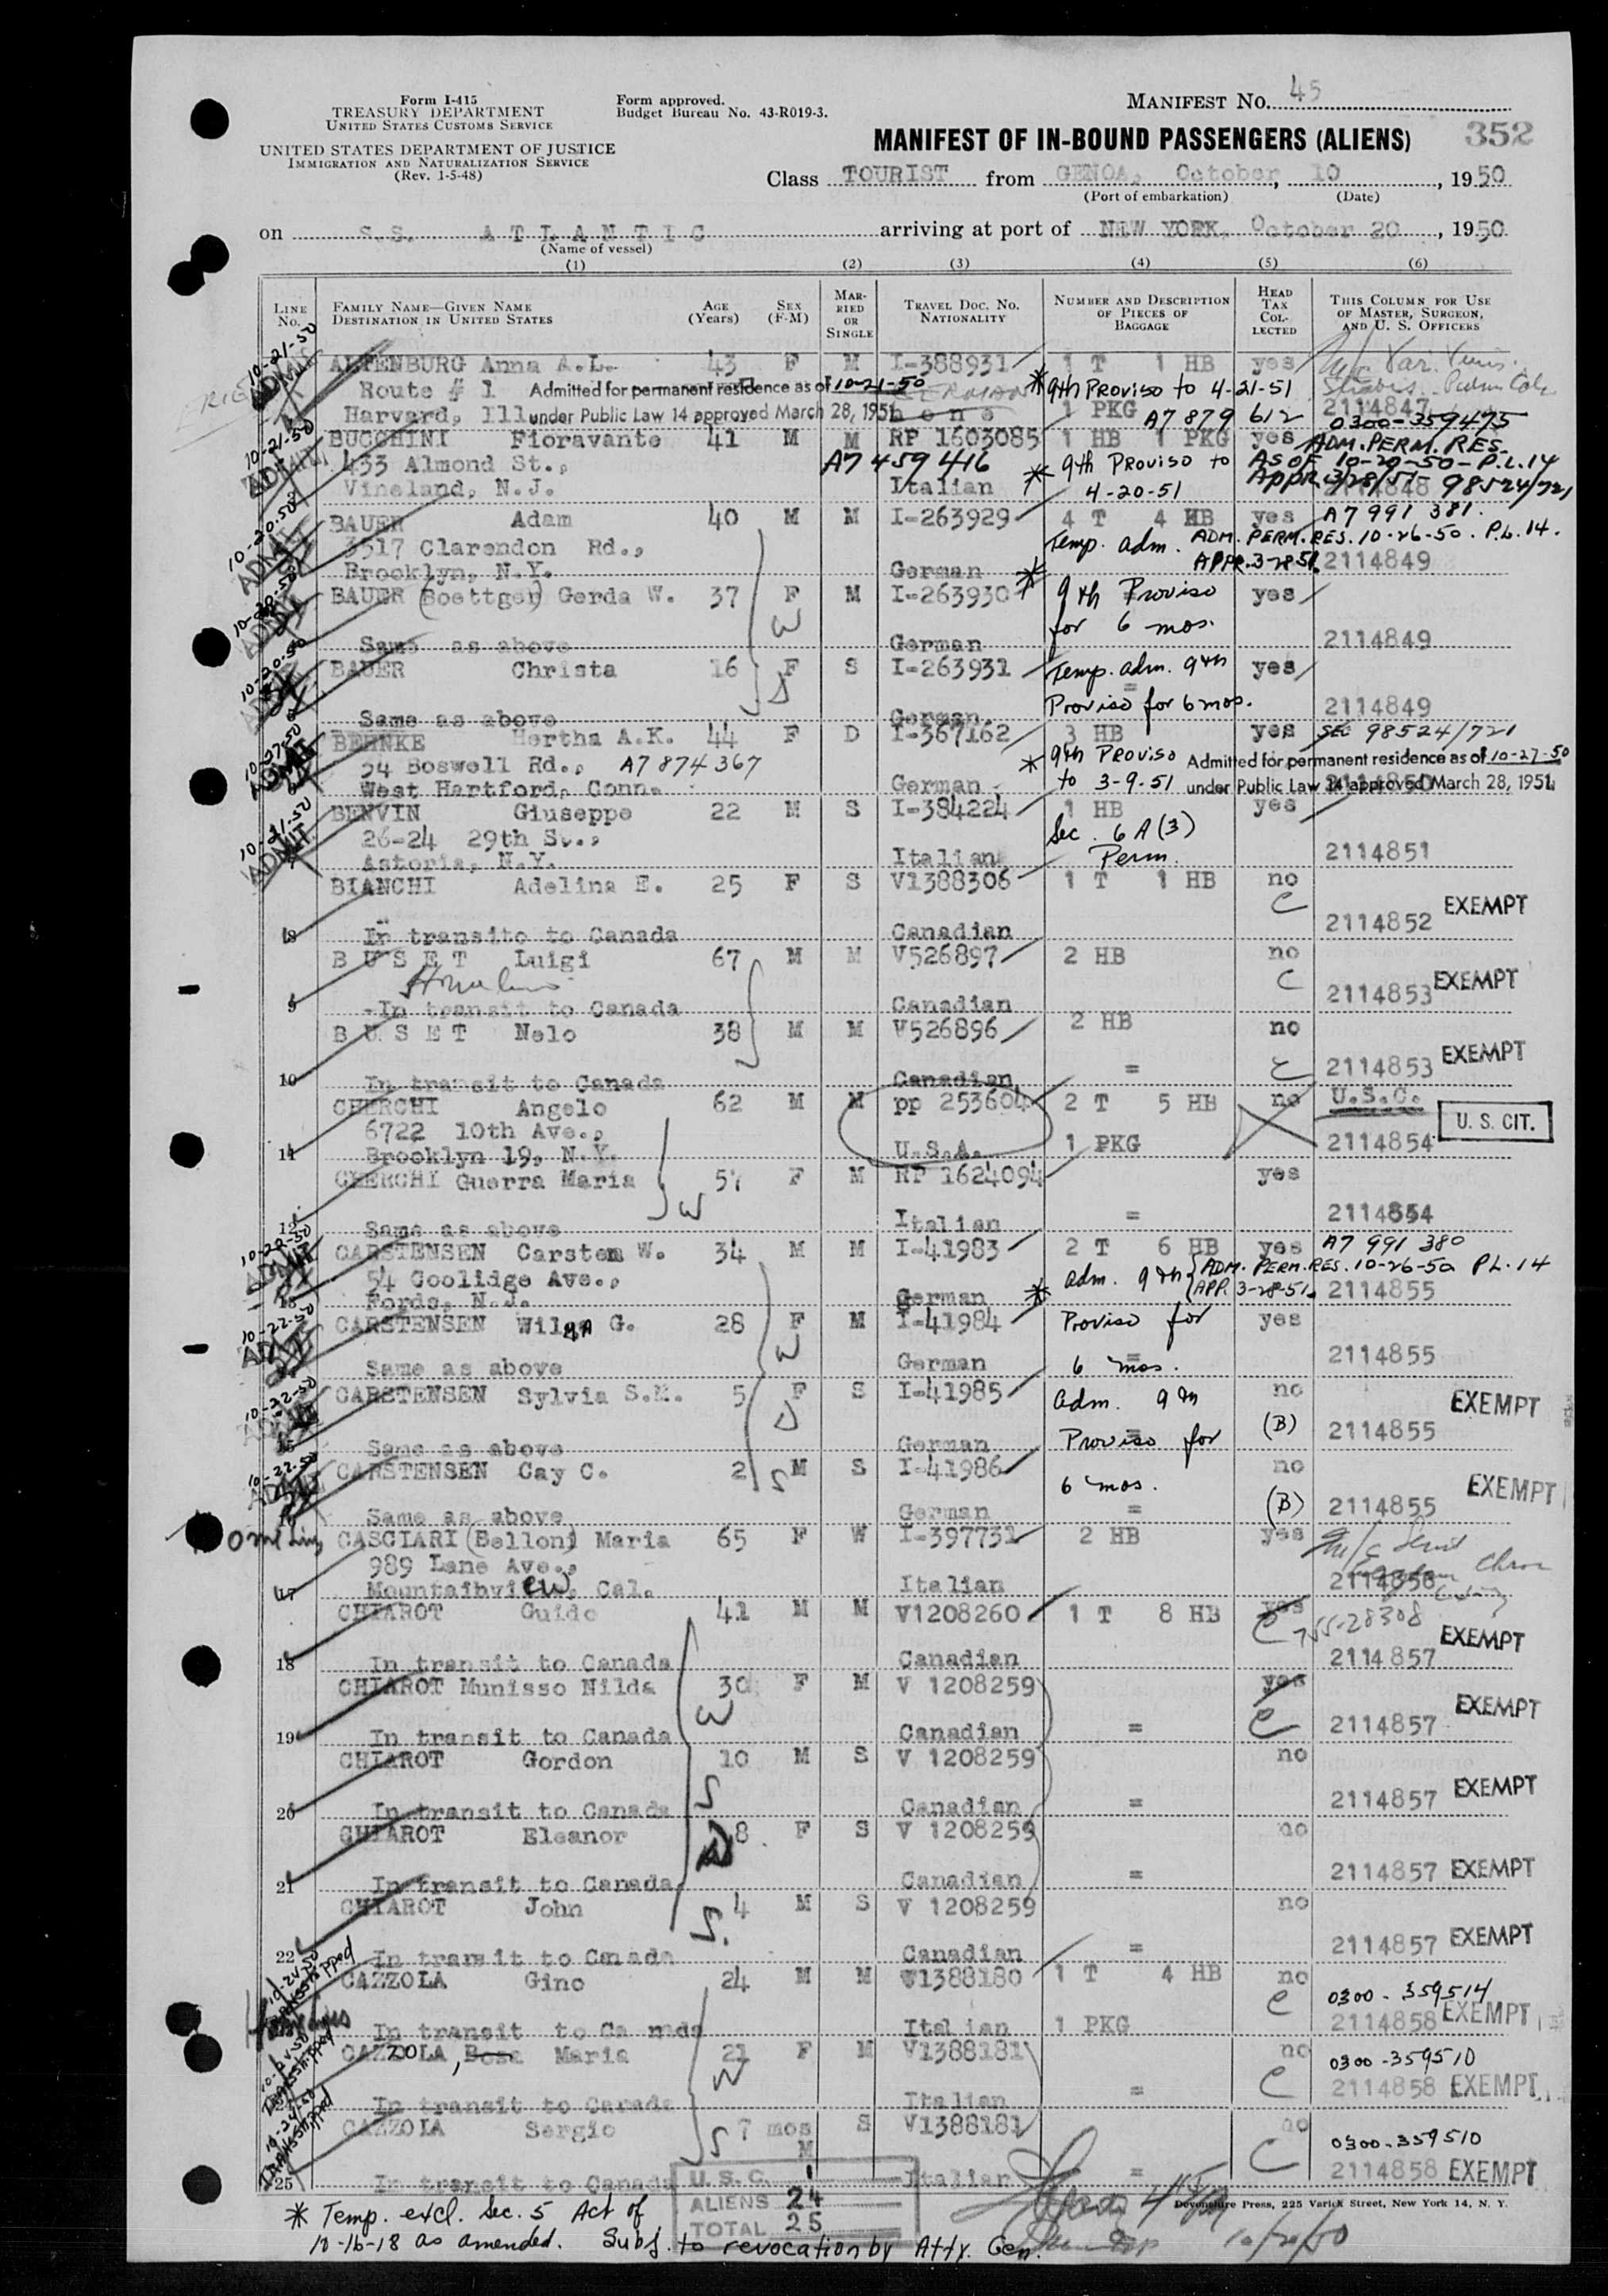 Form I-415
TREASURY DEPARTMENT
UNITED STATES CUSTOMS SERVICE
UNITED STATES DEPARTMENT OF JUSTICE
IMMIGRATION AND NATURALIZATION SERVICE
(Rev. 1-5-48)
Form approved.
Budget Bureau No. 43-R019-3.
MANIFEST NO. 45
MANIFEST OF IN-BOUND PASSENGERS (ALIENS) 352
Class TOURIST from GENOA, October, 10, 1950
(Port of embarkation) (Date)
on S.S. ATLANTIC arriving at port of NEW YORK, October 20, 1950
(Name of vessel)
(1) (2) (3) (4) (5) (6)
LINE NO. FAMILY NAME—GIVEN NAME DESTINATION IN UNITED STATES AGE (Years) SEX (F-M) MARRIED OR SINGLE TRAVEL DOC. NO. NATIONALITY NUMBER AND DESCRIPTION OF PIECES OF BAGGAGE HEAD TAX COLLECTED THIS COLUMN FOR USE OF MASTER, SURGEON, AND U. S. OFFICERS
10-21-50 ADMIT ALTENBURG Anna A.L. 43 F M I-388931 1 T 1 HB yes
Route # 1 Admitted for permanent residence as of 10-21-50 * 9th Proviso to 4-21-51
Harvard, Ill. under Public Law 14 approved March 28, 1951 1 PKG A7 879 612 2114847 0300-359475
10-21-50 ADMIT BUCCHINI Fioravante 41 M M RP 1603085 1 HB 1 PKG yes ADM. PERM. RES.
433 Almond St., A7 459 416 * 9th Proviso to AS OF 10-20-50 - P.L. 14
Vineland, N.J. Italian 4-20-51 APPR 3/28/51 2114848 98524/721
10-20-50 ADMIT BAUER Adam 40 M M I-263929 4 T 4 HB yes A7 991 381
3517 Clarendon Rd., Temp. adm. ADM. PERM. RES. 10-26-50. P.L. 14.
Brooklyn, N.Y. German * APPR. 3-28-51 2114849
10-20-50 ADMIT BAUER (Boettger) Gerda W. 37 F M I-263930 9th Proviso yes
W for 6 mos.
Same as above German 2114849
10-20-50 BAUER Christa 16 F S I-263931 Temp. adm. 9th yes
D =
Same as above German Proviso for 6 mos. 2114849
10-27-50 ADMIT BEHNKE Hertha A.K. 44 F D I-367162 3 HB yes SEC 98524/721
54 Boswell Rd., A7 874 367 * 9th Proviso Admitted for permanent residence as of 10-27-50
West Hartford, Conn. German to 3-9-51 under Public Law 14 approved March 28, 1951 2114850
10-21-50 ADMIT BENVIN Giuseppe 22 M S I-384224 1 HB yes
26-24 29th St., Sec. 6A(3)
Astoria, N.Y. Italian Perm. 2114851
BIANCHI Adelina E. 25 F S V1388306 1 T 1 HB no
C EXEMPT
8 In transito to Canada Canadian 2114852
BUSET Luigi 67 M M V526897 2 HB no
C EXEMPT
9 -In transit to Canada Canadian 2114853
BUSET Nelo 38 M M V526896 2 HB no
= C 2114853 EXEMPT
10 In transit to Canada Canadian
CHERCHI Angelo 62 M M pp 253604 2 T 5 HB no U.S.C.
6722 10th Ave., U.S. CIT.
11 Brooklyn 19, N.Y. U.S.A. 1 PKG 2114854
CHERCHI Guerra Maria 57 F M RP 1624094 yes
W
12 Same as above Italian = 2114854
10-22-50 ADMIT CARSTENSEN Carsten W. 34 M M I-41983 2 T 6 HB yes A7 991 380
54 Coolidge Ave., adm. 9th ADM. PERM. RES. 10-26-50 P.L. 14
13 Fords, N.J. German * APP. 3-28-51 2114855
10-22-50 ADMIT CARSTENSEN Wilma G. 28 F M I-41984 Proviso for yes
W
Same as above German 6 mos. = 2114855
10-22-50 CARSTENSEN Sylvia S.M. 5 F S I-41985 adm. 9th no EXEMPT
D (B)
15 Same as above German Proviso for = 2114855
10-22-50 ADMIT CARSTENSEN Cay C. 2 M S I-41986 6 mos. no
S (B) EXEMPT
16 Same as above German = 2114855
CASCIARI (Belloni) Maria 65 F W I-397731 2 HB yes
989 Lane Ave.,
17 Mountainview, Cal. Italian 2114856
CHIAROT Guido 41 M M V1208260 1 T 8 HB yes
C 755-28308 EXEMPT
18 In transit to Canada Canadian 2114857
CHIAROT Munisso Nilda 30 F M V 1208259 yes
W C EXEMPT
19 In transit to Canada Canadian = 2114857
CHIAROT Gordon 10 M S V 1208259 no
S EXEMPT
20 In transit to Canada Canadian = 2114857
CHIAROT Eleanor 8 F S V 1208259 no
D
21 In transit to Canada Canadian = 2114857 EXEMPT
CHIAROT John 4 M S V 1208259 no
S.
22 In transit to Canada Canadian = 2114857 EXEMPT
10-24-50 Transshipped CAZZOLA Gino 24 M M V1388180 1 T 4 HB no
C 0300-359514
In transit to Canada Italian 1 PKG 2114858 EXEMPT
Transshipped CAZZOLA, Bosa Maria 21 F M V1388181 no 0300-359510
W C
In transit to Canada Italian = 2114858 EXEMPT
10-24-50 Transshipped CAZZOLA Sergio 7 mos M S V1388181 no
S C 0300-359510
25 In transit to Canada Italian = 2114858 EXEMPT
U.S.C. 1
ALIENS 24
TOTAL 25
Devonshire Press, 225 Varick Street, New York 14, N. Y.
* Temp. excl. Sec. 5 Act of
10-16-18 as amended. Subj. to revocation by Atty. Gen.
10/20/50